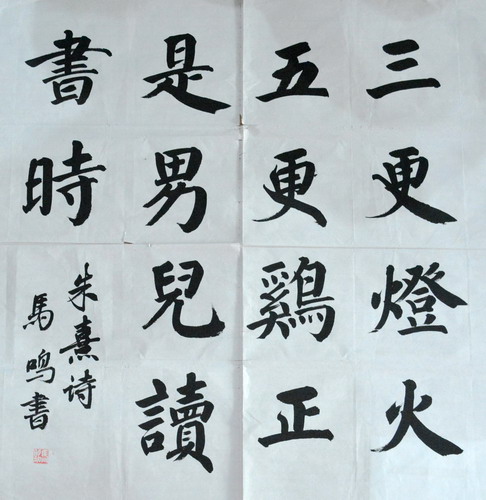 三更燈火
五更鷄正
是男兒讀
書時
朱熹诗
馬鸣書